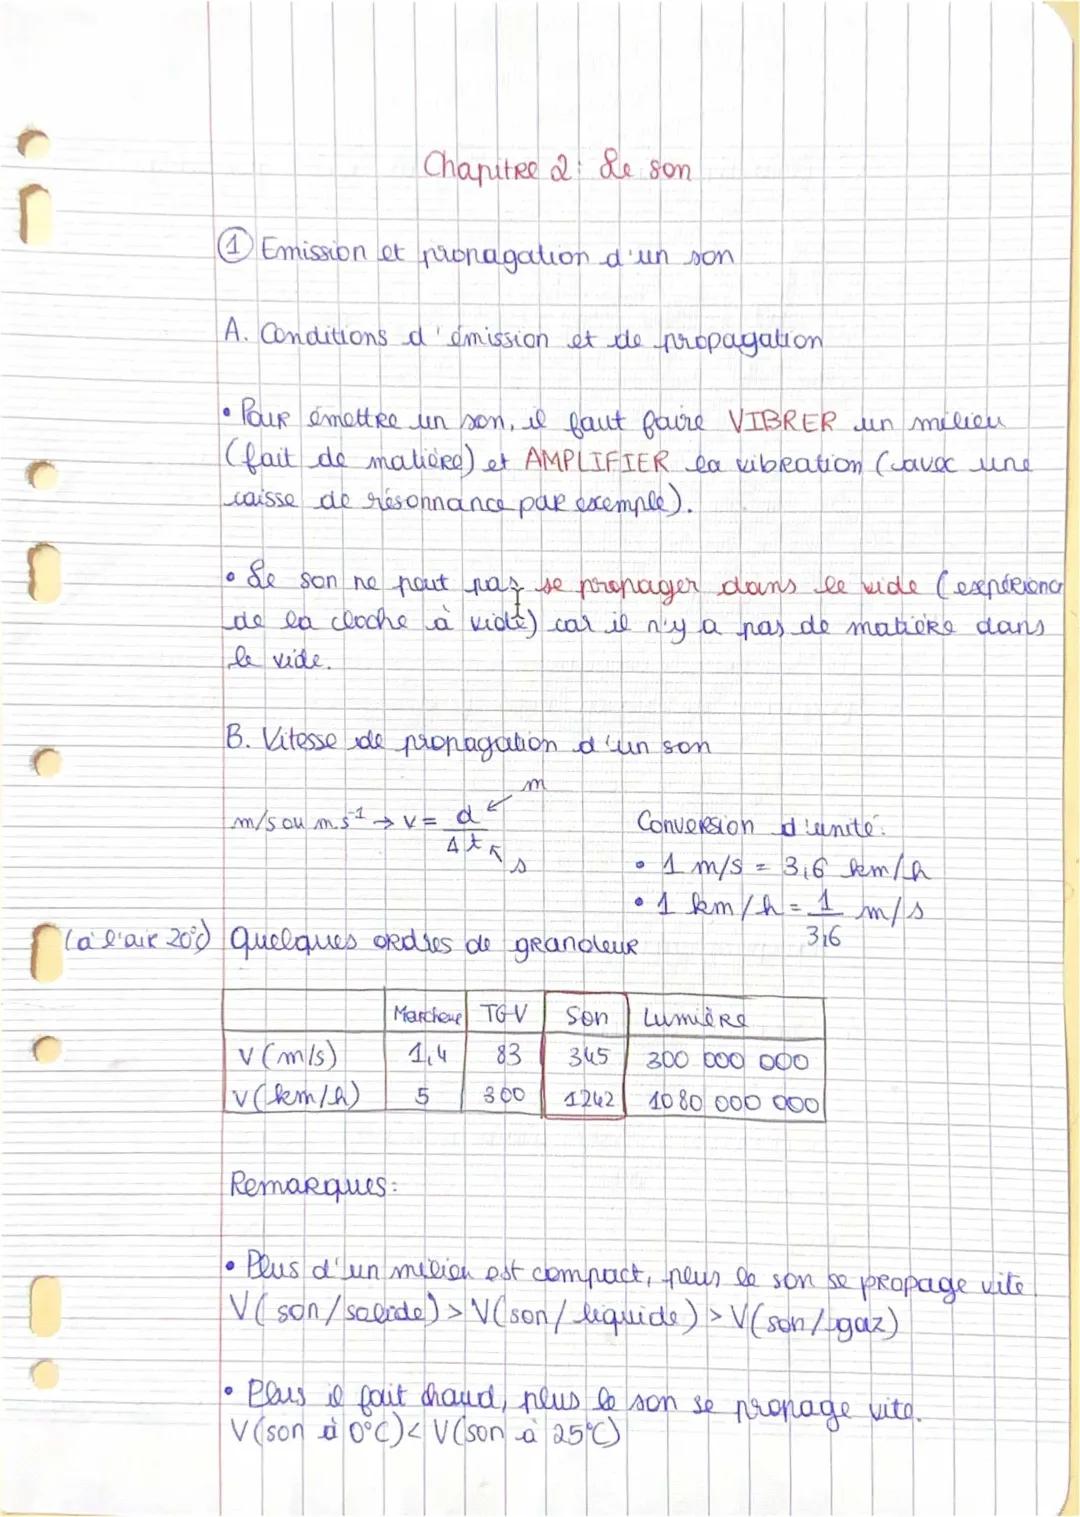 Chapitre 2: Le son
① Emission et propagation d'un son
A. Conditions d'émission et de propagation
• Pour émettre un son, il faut faire VIBRER un milieu
(fait de matière) et AMPLIFIER la vibration (avec une
caisse de résonnance par exemple).
• Le son ne peut pas se propager dans le vide (expérience
de la cloche à vide) car il n'y a pas de matière dans
le vide.
B. Vitesse de propagation d'un son
m/s ou m.s⁻¹ → v = d/Δt
m
s
Conversion d'unité:
• 1 m/s = 3,6 km/h
• 1 km/h = 1/3,6 m/s
(à l'air 20°C) Quelques ordres de grandeur
Marcheur TGV Son Lumière
V (m/s) 1,4 83 345 300 000 000
V (km/h) 5 300 1242 1080 000 000
Remarques:
• Plus d'un milieu est compact, plus le son se propage vite.
V(son/solide) > V(son/liquide) > V(son/gaz)
• Plus il fait chaud, plus le son se propage vite.
V(son à 0°C) < V(son à 25°C)